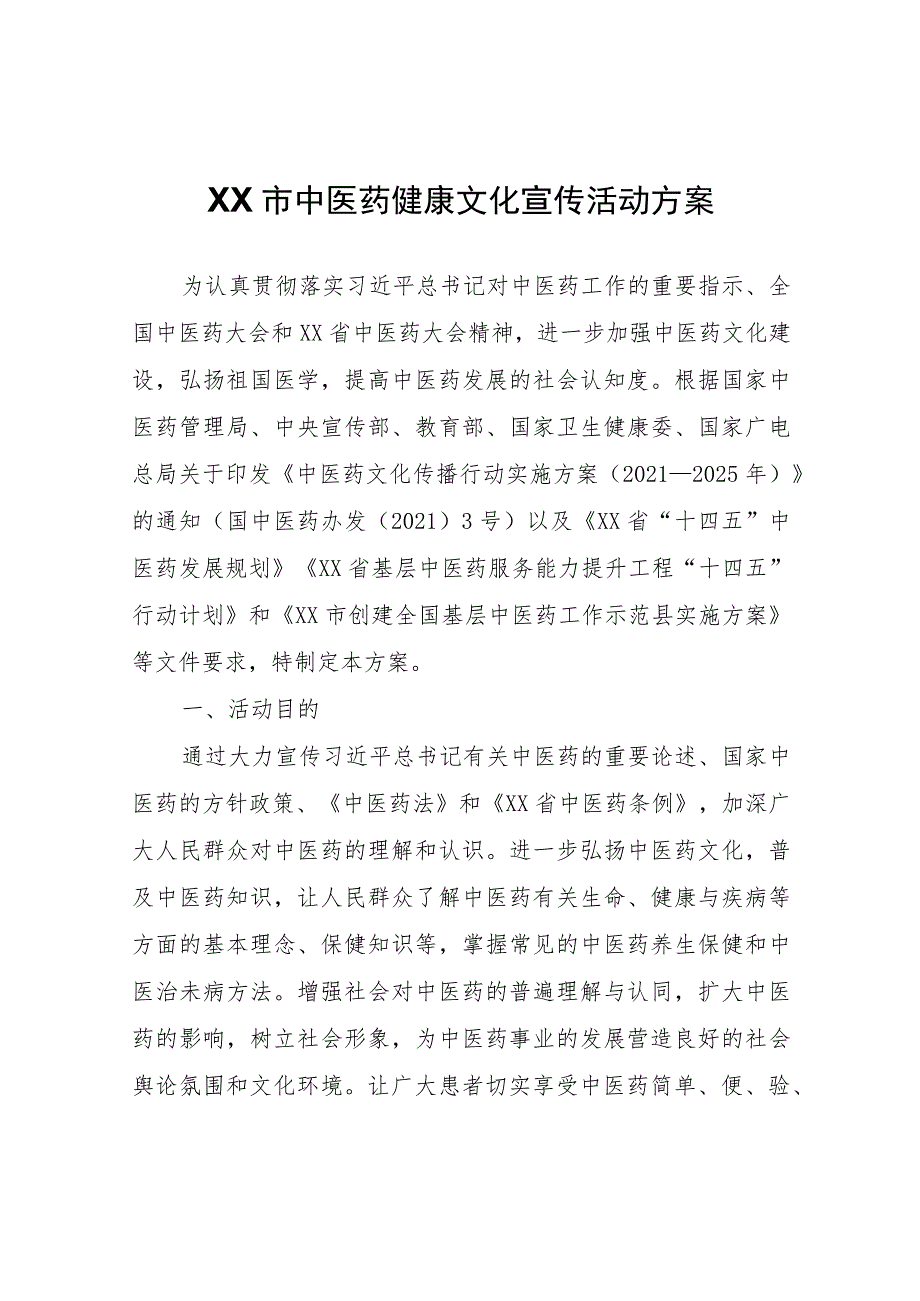 XX市中医药健康文化宣传活动方案
为认真贯彻落实习近平总书记对中医药工作的重要指示、全
国中医药大会和XX省中医药大会精神，进一步加强中医药文化建
设，弘扬祖国医学，提高中医药发展的社会认知度。根据国家中
医药管理局、中央宣传部、教育部、国家卫生健康委、国家广电
总局关于印发《中医药文化传播行动实施方案（2021—2025年）》
的通知（国中医药办发（2021）3号）以及《XX省“十四五”中
医药发展规划》《XX省基层中医药服务能力提升工程“十四五”
行动计划》和《XX市创建全国基层中医药工作示范县实施方案》
等文件要求，特制定本方案。
一、活动目的
通过大力宣传习近平总书记有关中医药的重要论述、国家中
医药的方针政策、《中医药法》和《XX省中医药条例》，加深广
大人民群众对中医药的理解和认识。进一步弘扬中医药文化，普
及中医药知识，让人民群众了解中医药有关生命、健康与疾病等
方面的基本理念、保健知识等，掌握常见的中医药养生保健和中
医治未病方法。增强社会对中医药的普遍理解与认同，扩大中医
药的影响，树立社会形象，为中医药事业的发展营造良好的社会
舆论氛围和文化环境。让广大患者切实享受中医药简单、便、验、